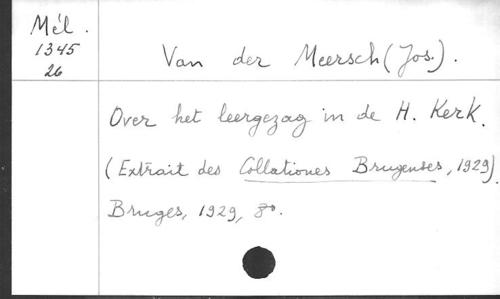 Mél.
1345
26
Van der Meersch (Jos.).
Over het leergezag in de H. Kerk.
(Extrait des Collationes Brugenses, 1929).
Bruges, 1929, 8º.